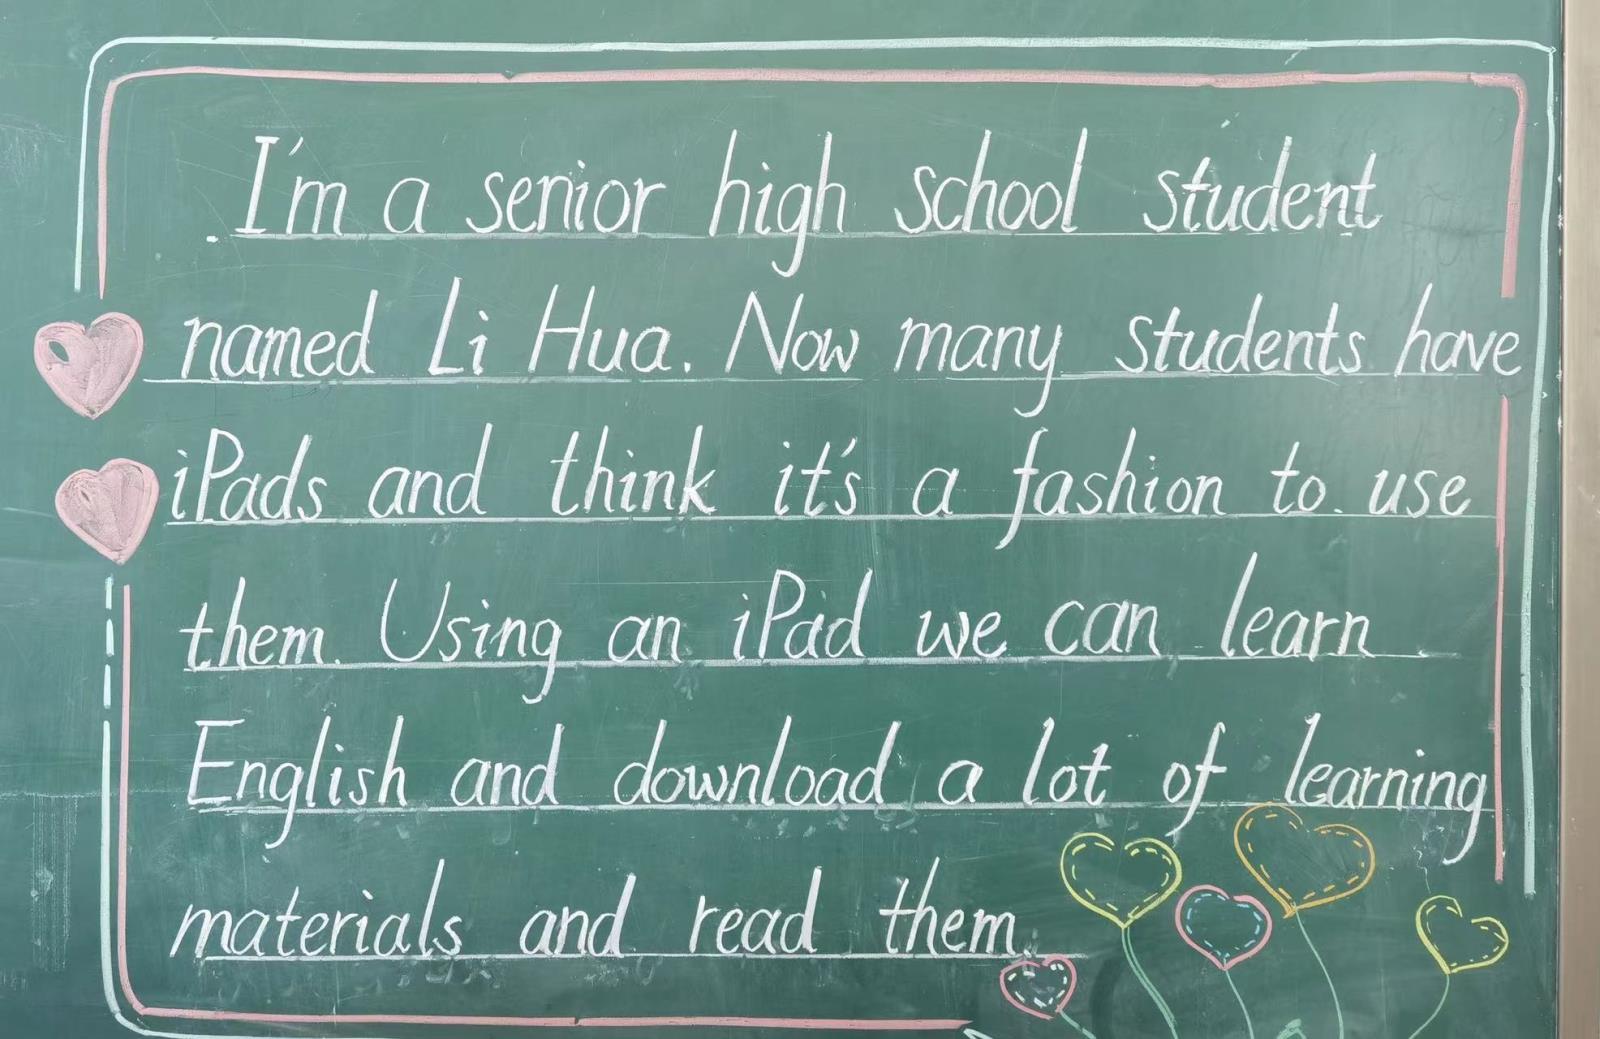 I'm a senior high school student
named Li Hua. Now many students have
iPads and think it's a fashion to use
them. Using an iPad we can learn
English and download a lot of learning
materials and read them.